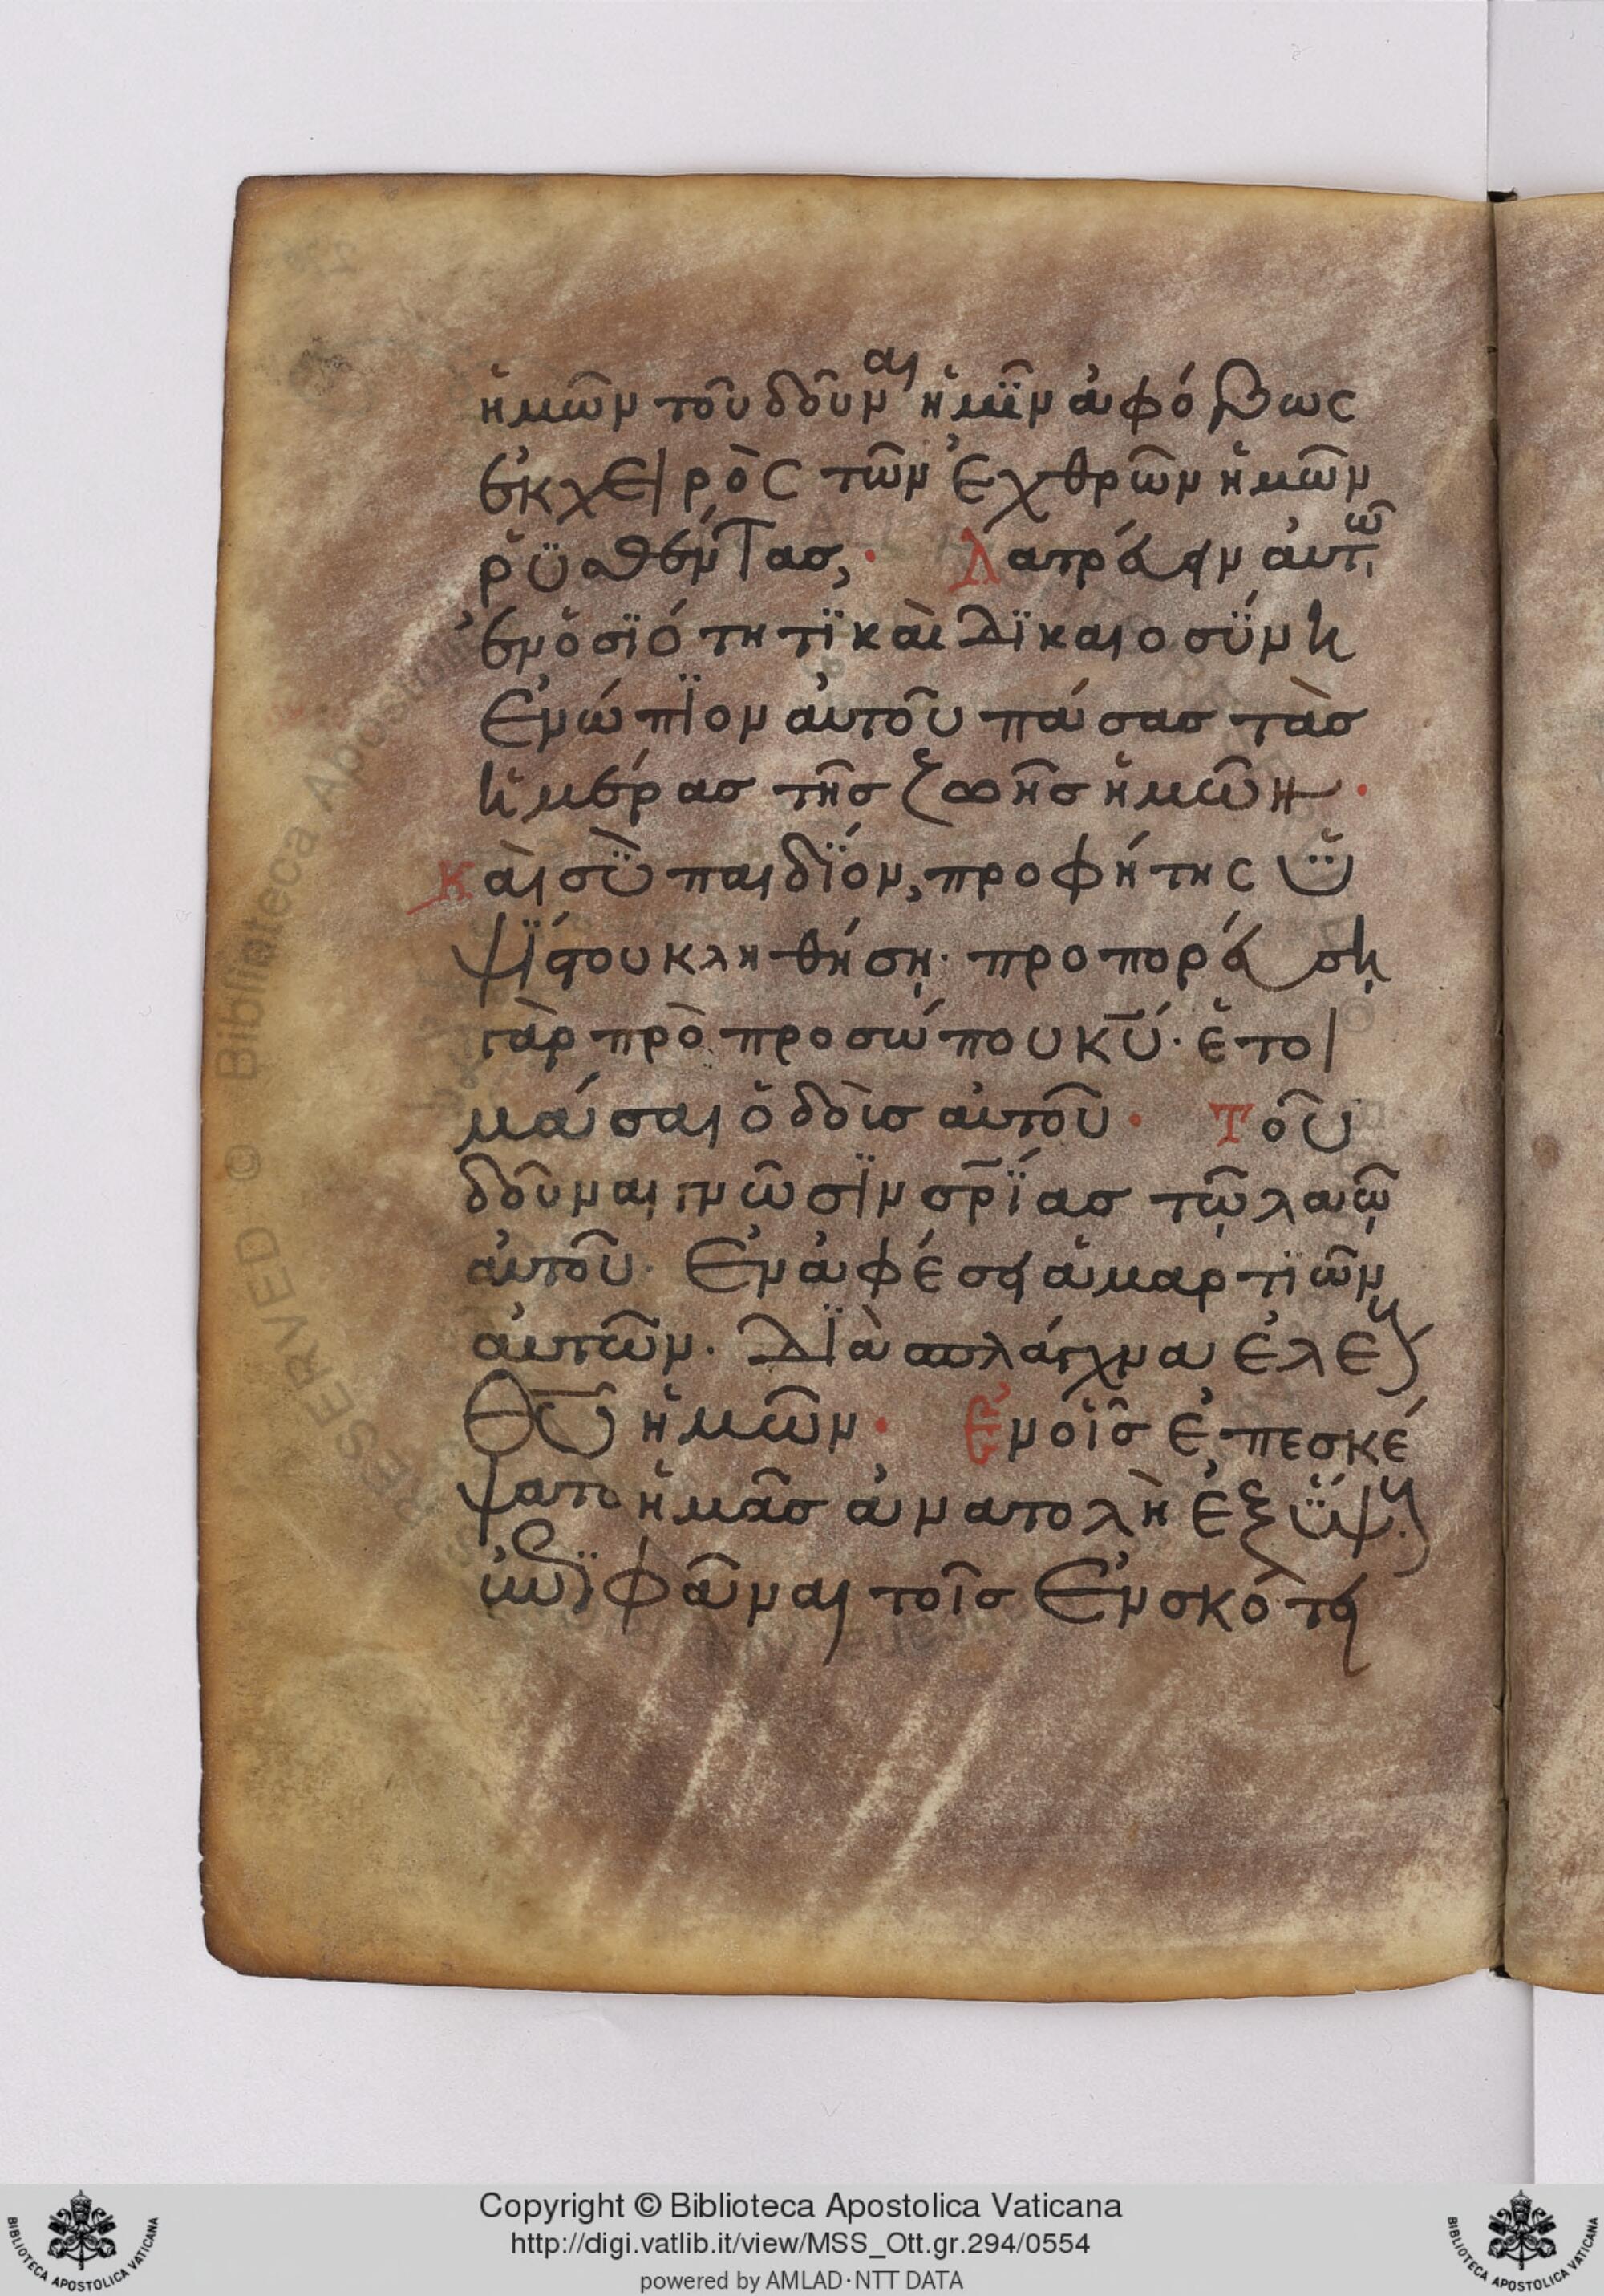 ἡμῶν τοῦ δοῦναι ἡμῖν ἀφόβως
ἐκ χειρὸς τῶν ἐχθρῶν ἡμῶν
ῥϋσθέντας, · Λατρεύειν αὐτῶ
ἐν ὁσϊότητϊ καὶ δϊκαιοσϋνη
ἐνώπϊον αὐτοῦ πάσας τὰς
ἡμέρας τῆς ζωῆς ἡμῶν ·
Καὶ σϋ παιδϊόν, προφήτης ϋ
ψϊστου κληθήσῃ · προπορεύσῃ
γὰρ πρὸ προσώπου κ̅υ̅ · ἑτοι
μάσαι ὁδοὺς αὐτοῦ · Τοῦ
δοῦναι γνῶσϊν σ̅ρ̅ϊας τῷ λαῷ
αὐτοῦ · Ἐν ἀφέσει ἁμαρτϊῶν
αὐτῶν · Δϊὰ σπλάγχνα ἐλέους
Θ̅υ̅ ἡμῶν · Ἐν οἷς ἐπεσκέ
ψατο ἡμᾶς ἀνατολὴ ἐξ ϋψους
ἐπϊφᾶναι τοῖς ἐν σκότει
Copyright © Biblioteca Apostolica Vaticana
http://digi.vatlib.it/view/MSS_Ott.gr.294/0554
powered by AMLAD·NTT DATA
BIBLIOTECA APOSTOLICA VATICANA
BIBLIOTECA APOSTOLICA VATICANA